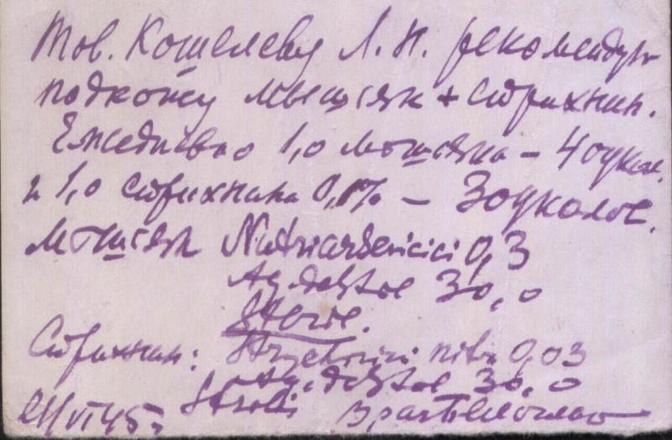 Тов. Кошелеву Л. Н. рекоменду
подкожу мышьяк + стрихнин.
Ежедневно 1,0 мышьяка – 40 укол.
и 1,0 стрихнина 0,1% – 30 уколов.
Мышьяк Natrii arsenicici 0,3
Aq. destill 30,0
Steril.
Стрихнин: Strychnini nitr 0,03
Aq. destill 30,0
Sterilis
VI 45 Врач